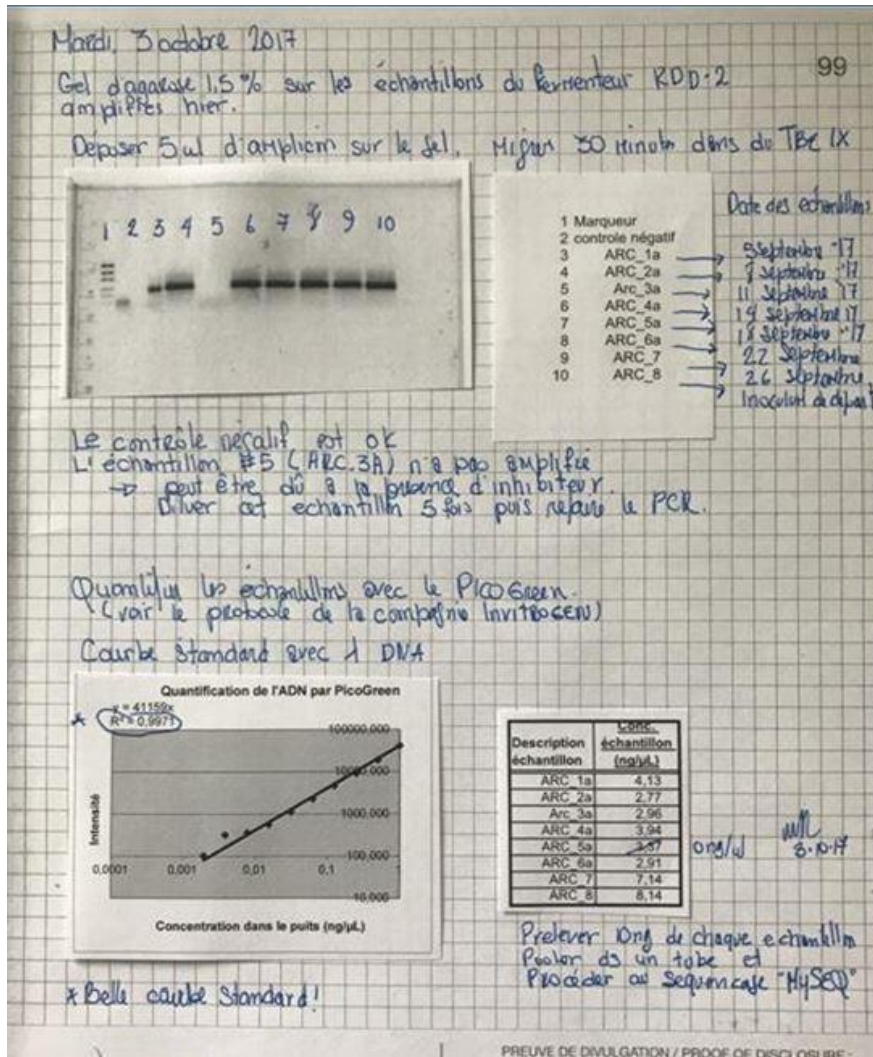 Mardi, 3 octobre 2017
99
Gel d'agarose 1,5% sur les échantillons du fermenteur RDD-2
amplifiés hier.
Déposer 5ul d'amplicon sur le gel. Migrer 30 minutes dans du TBE 1X
1 2 3 4 5 6 7 8 9 10
Date des échantillons
1 Marqueur
2 controle négatif
3 ARC_1a
4 ARC_2a
5 Arc_3a
6 ARC_4a
7 ARC_5a
8 ARC_6a
9 ARC_7
10 ARC_8
5 septembre '17
septembre '17
11 septembre 17
septembre 17
18 septembre '17
22 septembre
26 septembre
Inoculum de départ
Le contrôle négatif est ok
L'échantillon #5 (ARC.3A) n'a pas amplifié
→ peut être dû à la présence d'inhibiteur.
Diluer cet echantillon 5 fois puis refaire le PCR.
Quantifier les échantillons avec le PICOGreen.
(voir le protocole de la compagnie INVITROGEN)
Courbe Standard avec λ DNA
Quantification de l'ADN par PicoGreen
* y = 41159x
R² = 0,9971
100000,000
10000,000
1000,000
100,000
10,000
0,0001 0,001 0,01 0,1 1
Intensité
Concentration dans le puits (ng/µL)
* Belle courbe Standard!
Description échantillon
Conc. échantillon (ng/µL)
ARC_1a 4,13
ARC_2a 2,77
Arc_3a 2,96
ARC_4a 3,94
ARC_5a 3,37 0ng/ul
ARC_6a 2,91
ARC_7 7,14
ARC_8 8,14
3-10-17
Prélever 10ng de chaque echantillon
Pooler ds un tube et
Procéder au Séquençage "MySEQ"
PREUVE DE DIVULGATION / PROOF OF DISCLOSURE